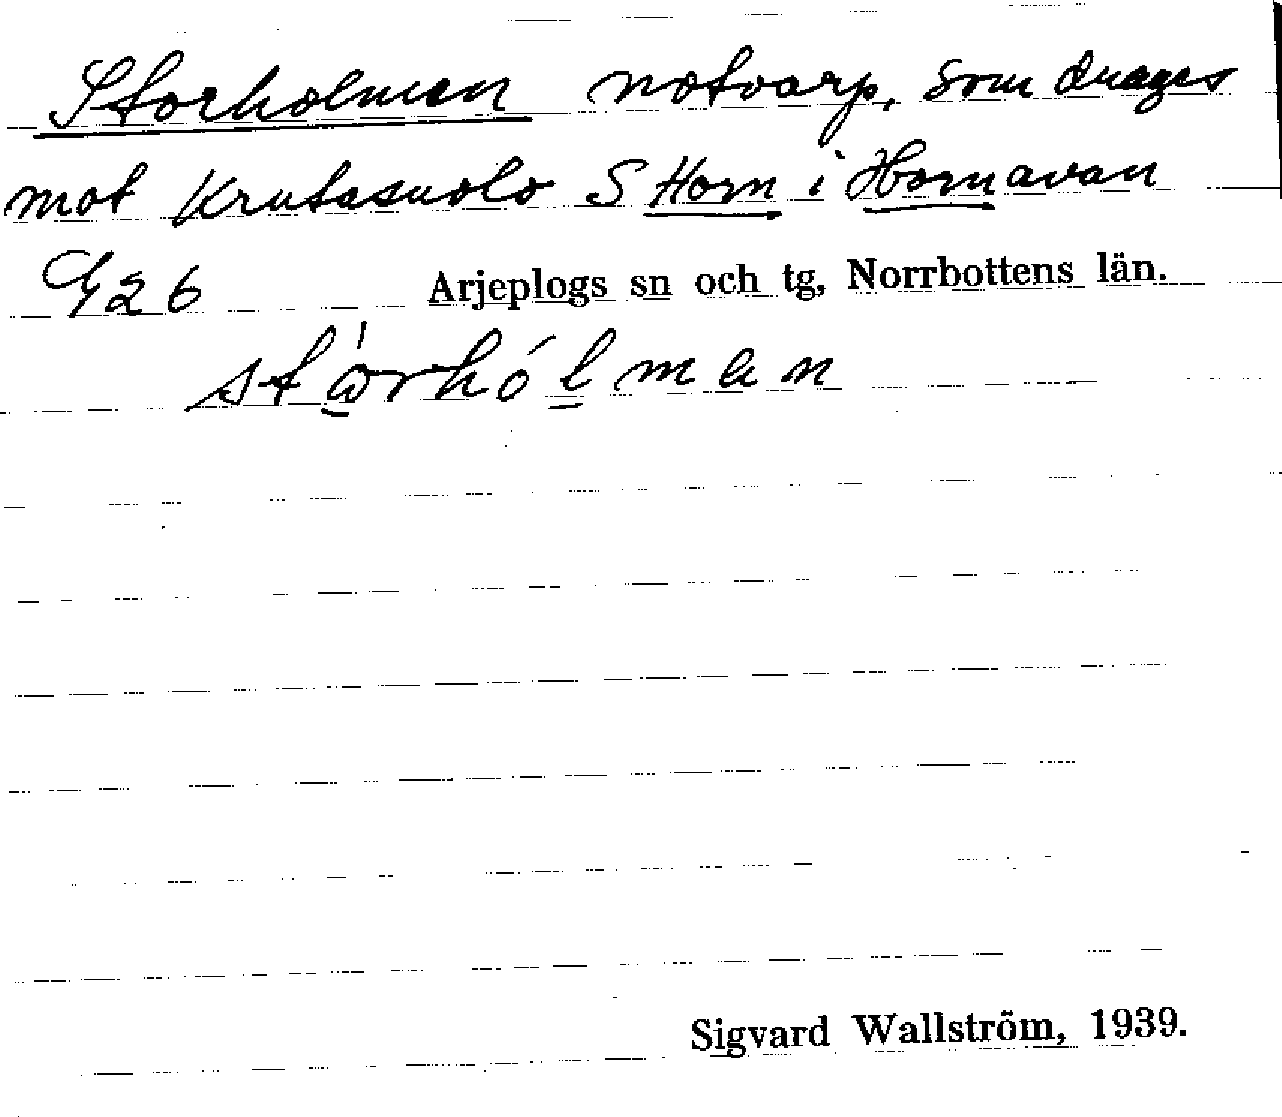 Storholmen notvarp, som drages
mot Krutasuolo S Horn i Hornavan
G26 Arjeplogs sn och tg, Norrbottens län.
stàrhólman
Sigvard Wallström, 1939.